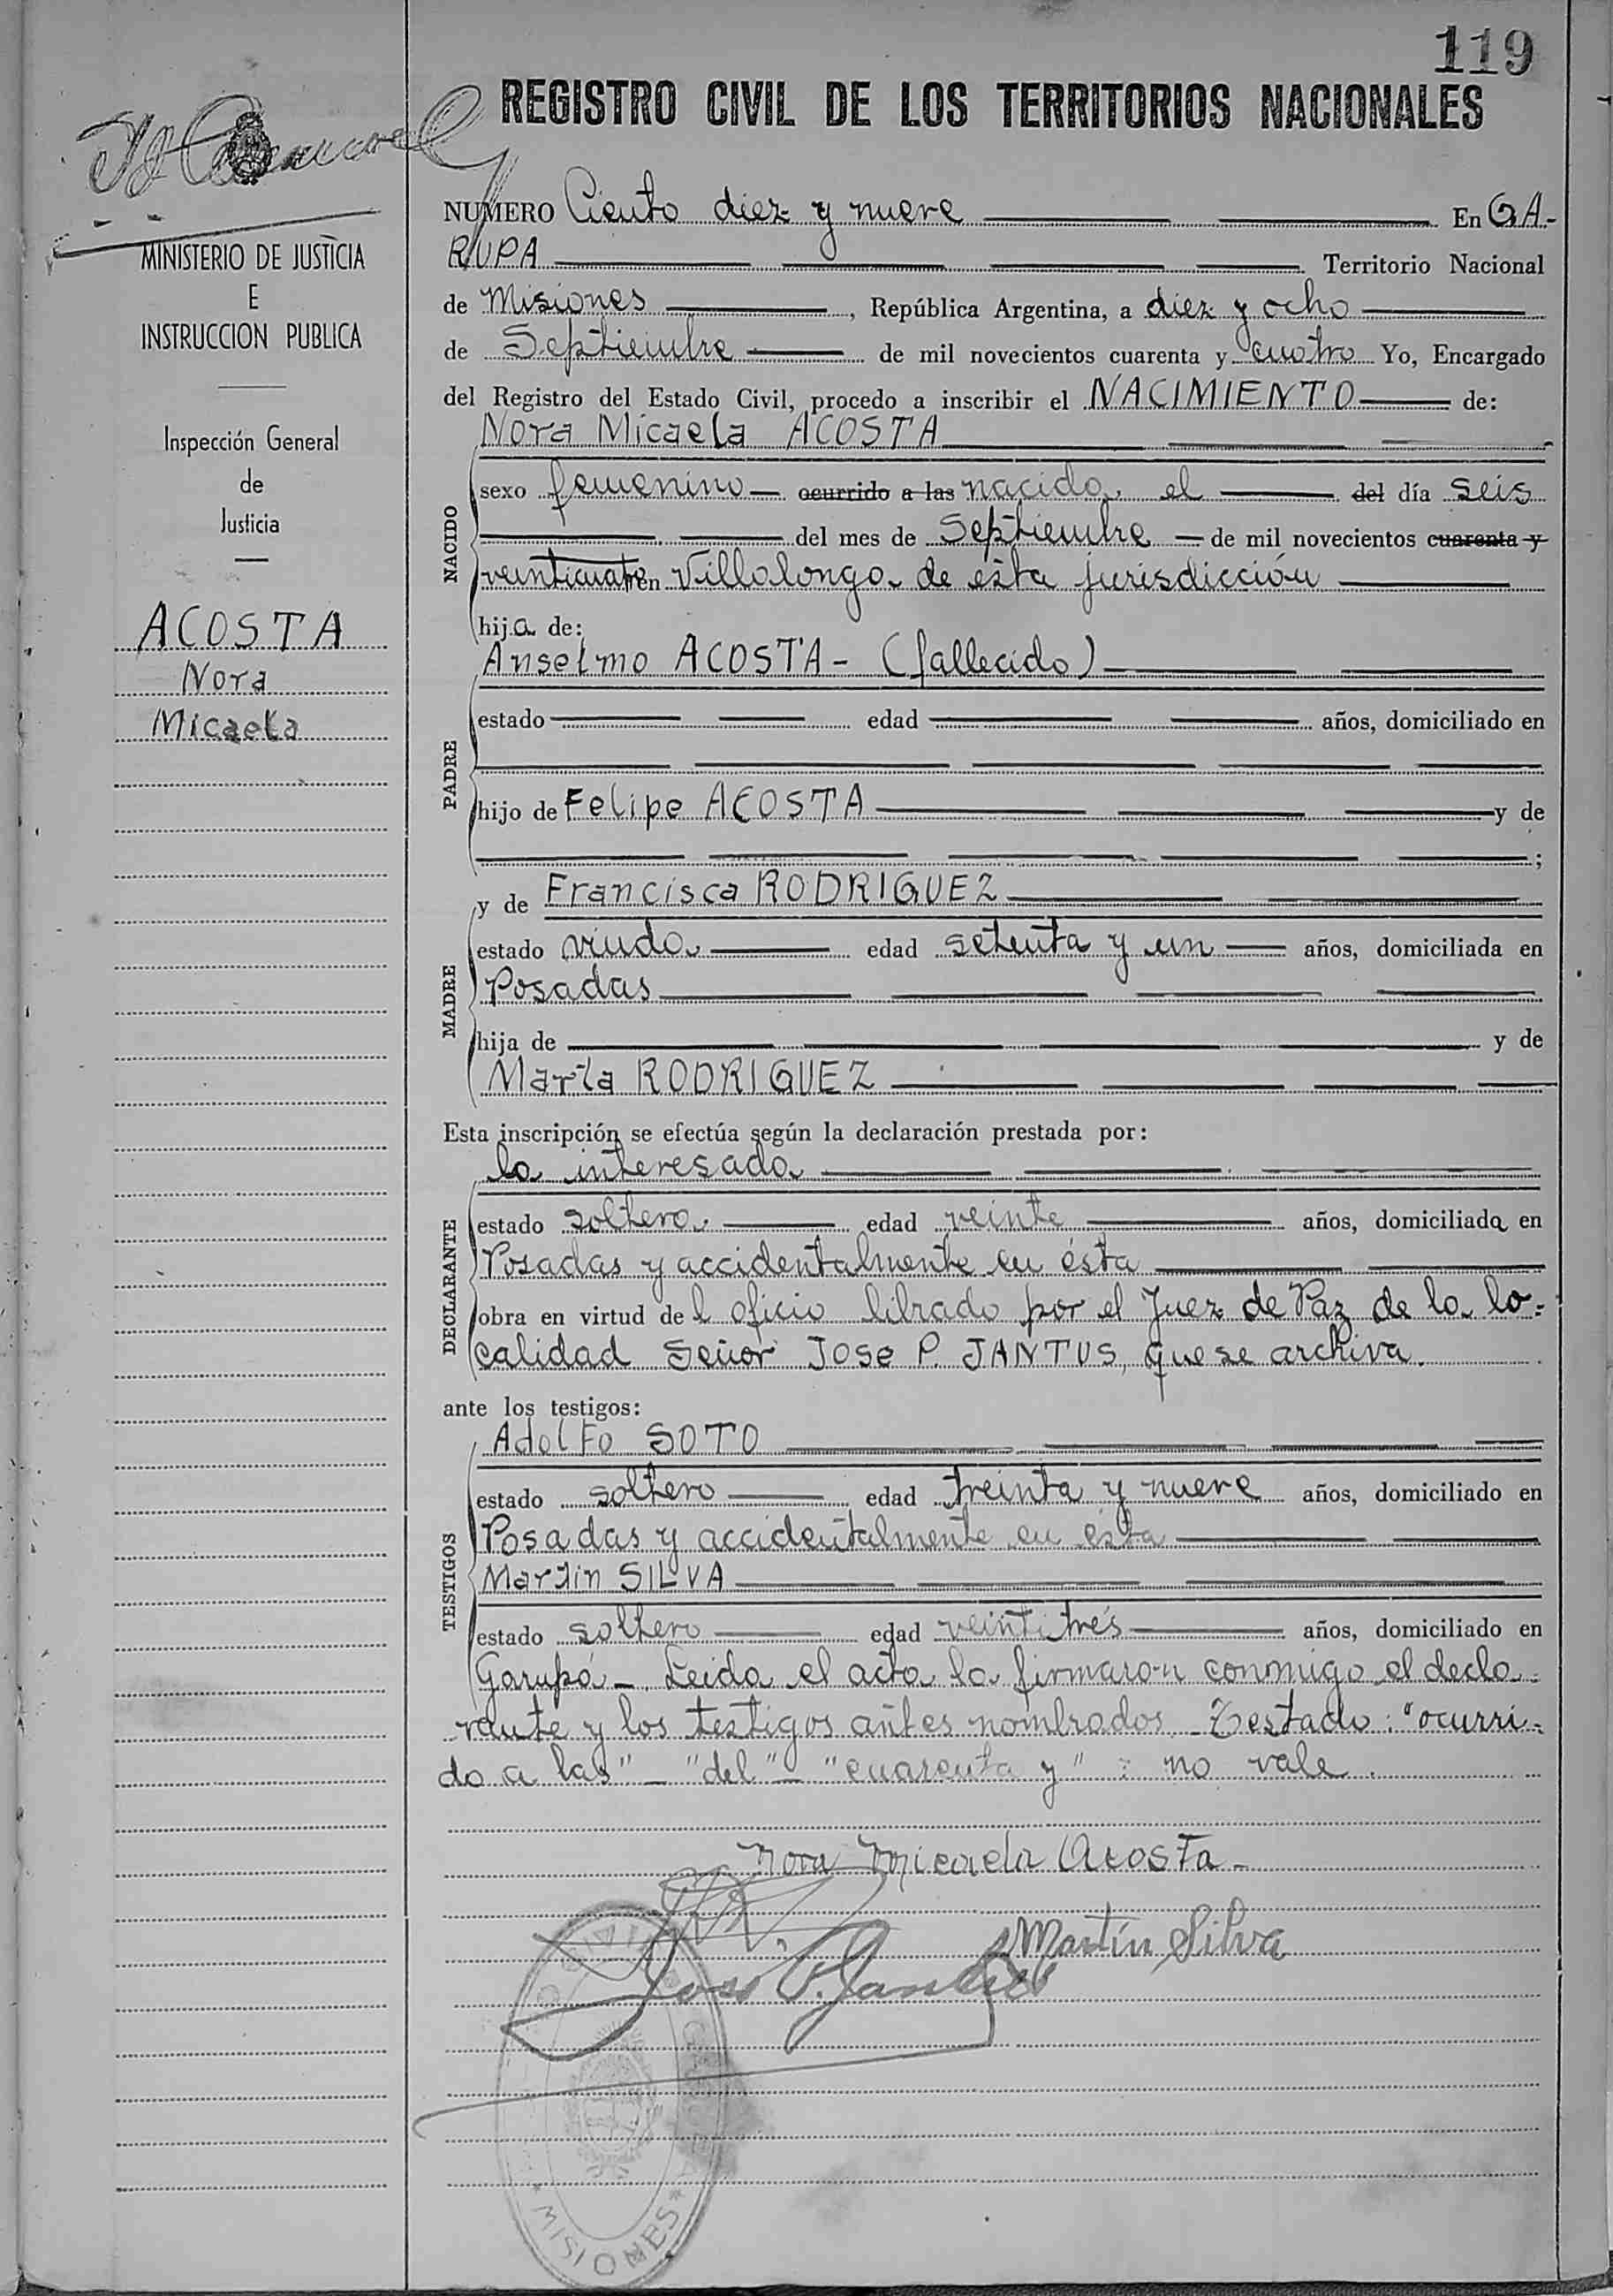 119
REGISTRO CIVIL DE LOS TERRITORIOS NACIONALES
MINISTERIO DE JUSTICIA
E
INSTRUCCION PUBLICA
Inspección General
de
Justicia
ACOSTA
Nora
Micaela
NUMERO Ciento diez y nueve En GA-
RUPA Territorio Nacional
de Misiones, República Argentina, a diez y ocho
de Septiembre de mil novecientos cuarenta y cuatro Yo, Encargado
del Registro del Estado Civil, procedo a inscribir el NACIMIENTO de:
Nora Micaela ACOSTA
NACIDO
sexo femenino ocurrido a las nacida el del día seis
del mes de Septiembre de mil novecientos cuarenta y
veinticuatro en Villalonga de esta jurisdicción
hija de:
Anselmo ACOSTA - (fallecido)
PADRE
estado edad años, domiciliado en
hijo de Felipe ACOSTA y de
;
MADRE
y de Francisca RODRIGUEZ
estado viuda edad setenta y un años, domiciliada en
Posadas
hija de y de
María RODRIGUEZ
Esta inscripción se efectúa según la declaración prestada por:
la interesada
DECLARANTE
estado soltera edad veinte años, domiciliada en
Posadas y accidentalmente en ésta
obra en virtud del oficio librado por el Juez de Paz de la lo-
calidad Señor Jose P. JANTUS, que se archiva.
ante los testigos:
TESTIGOS
Adolfo SOTO
estado soltero edad treinta y nueve años, domiciliado en
Posadas y accidentalmente en ésta
Martin SILVA
estado soltero edad veintitrés años, domiciliado en
Garupá - Leida el acta la firmaron conmigo el decla-
rante y los testigos antes nombrados. Testado: "ocurri-
do a las" - "del" - "cuarenta y" : no vale.
Nora Micaela Acosta
Martín Silva
Jose P. Jantus
MISIONES